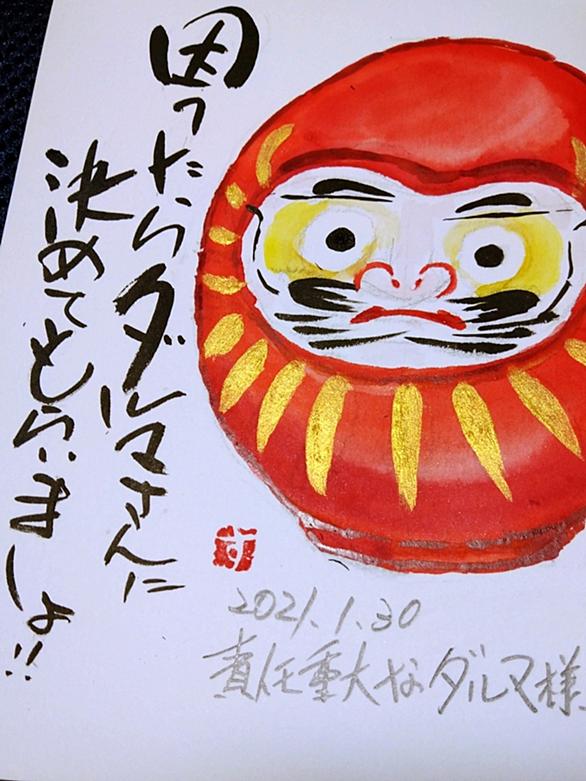 困ったらダルマさんに
決めてもらいましょ!!
2021.1.30
責任重大なダルマ様